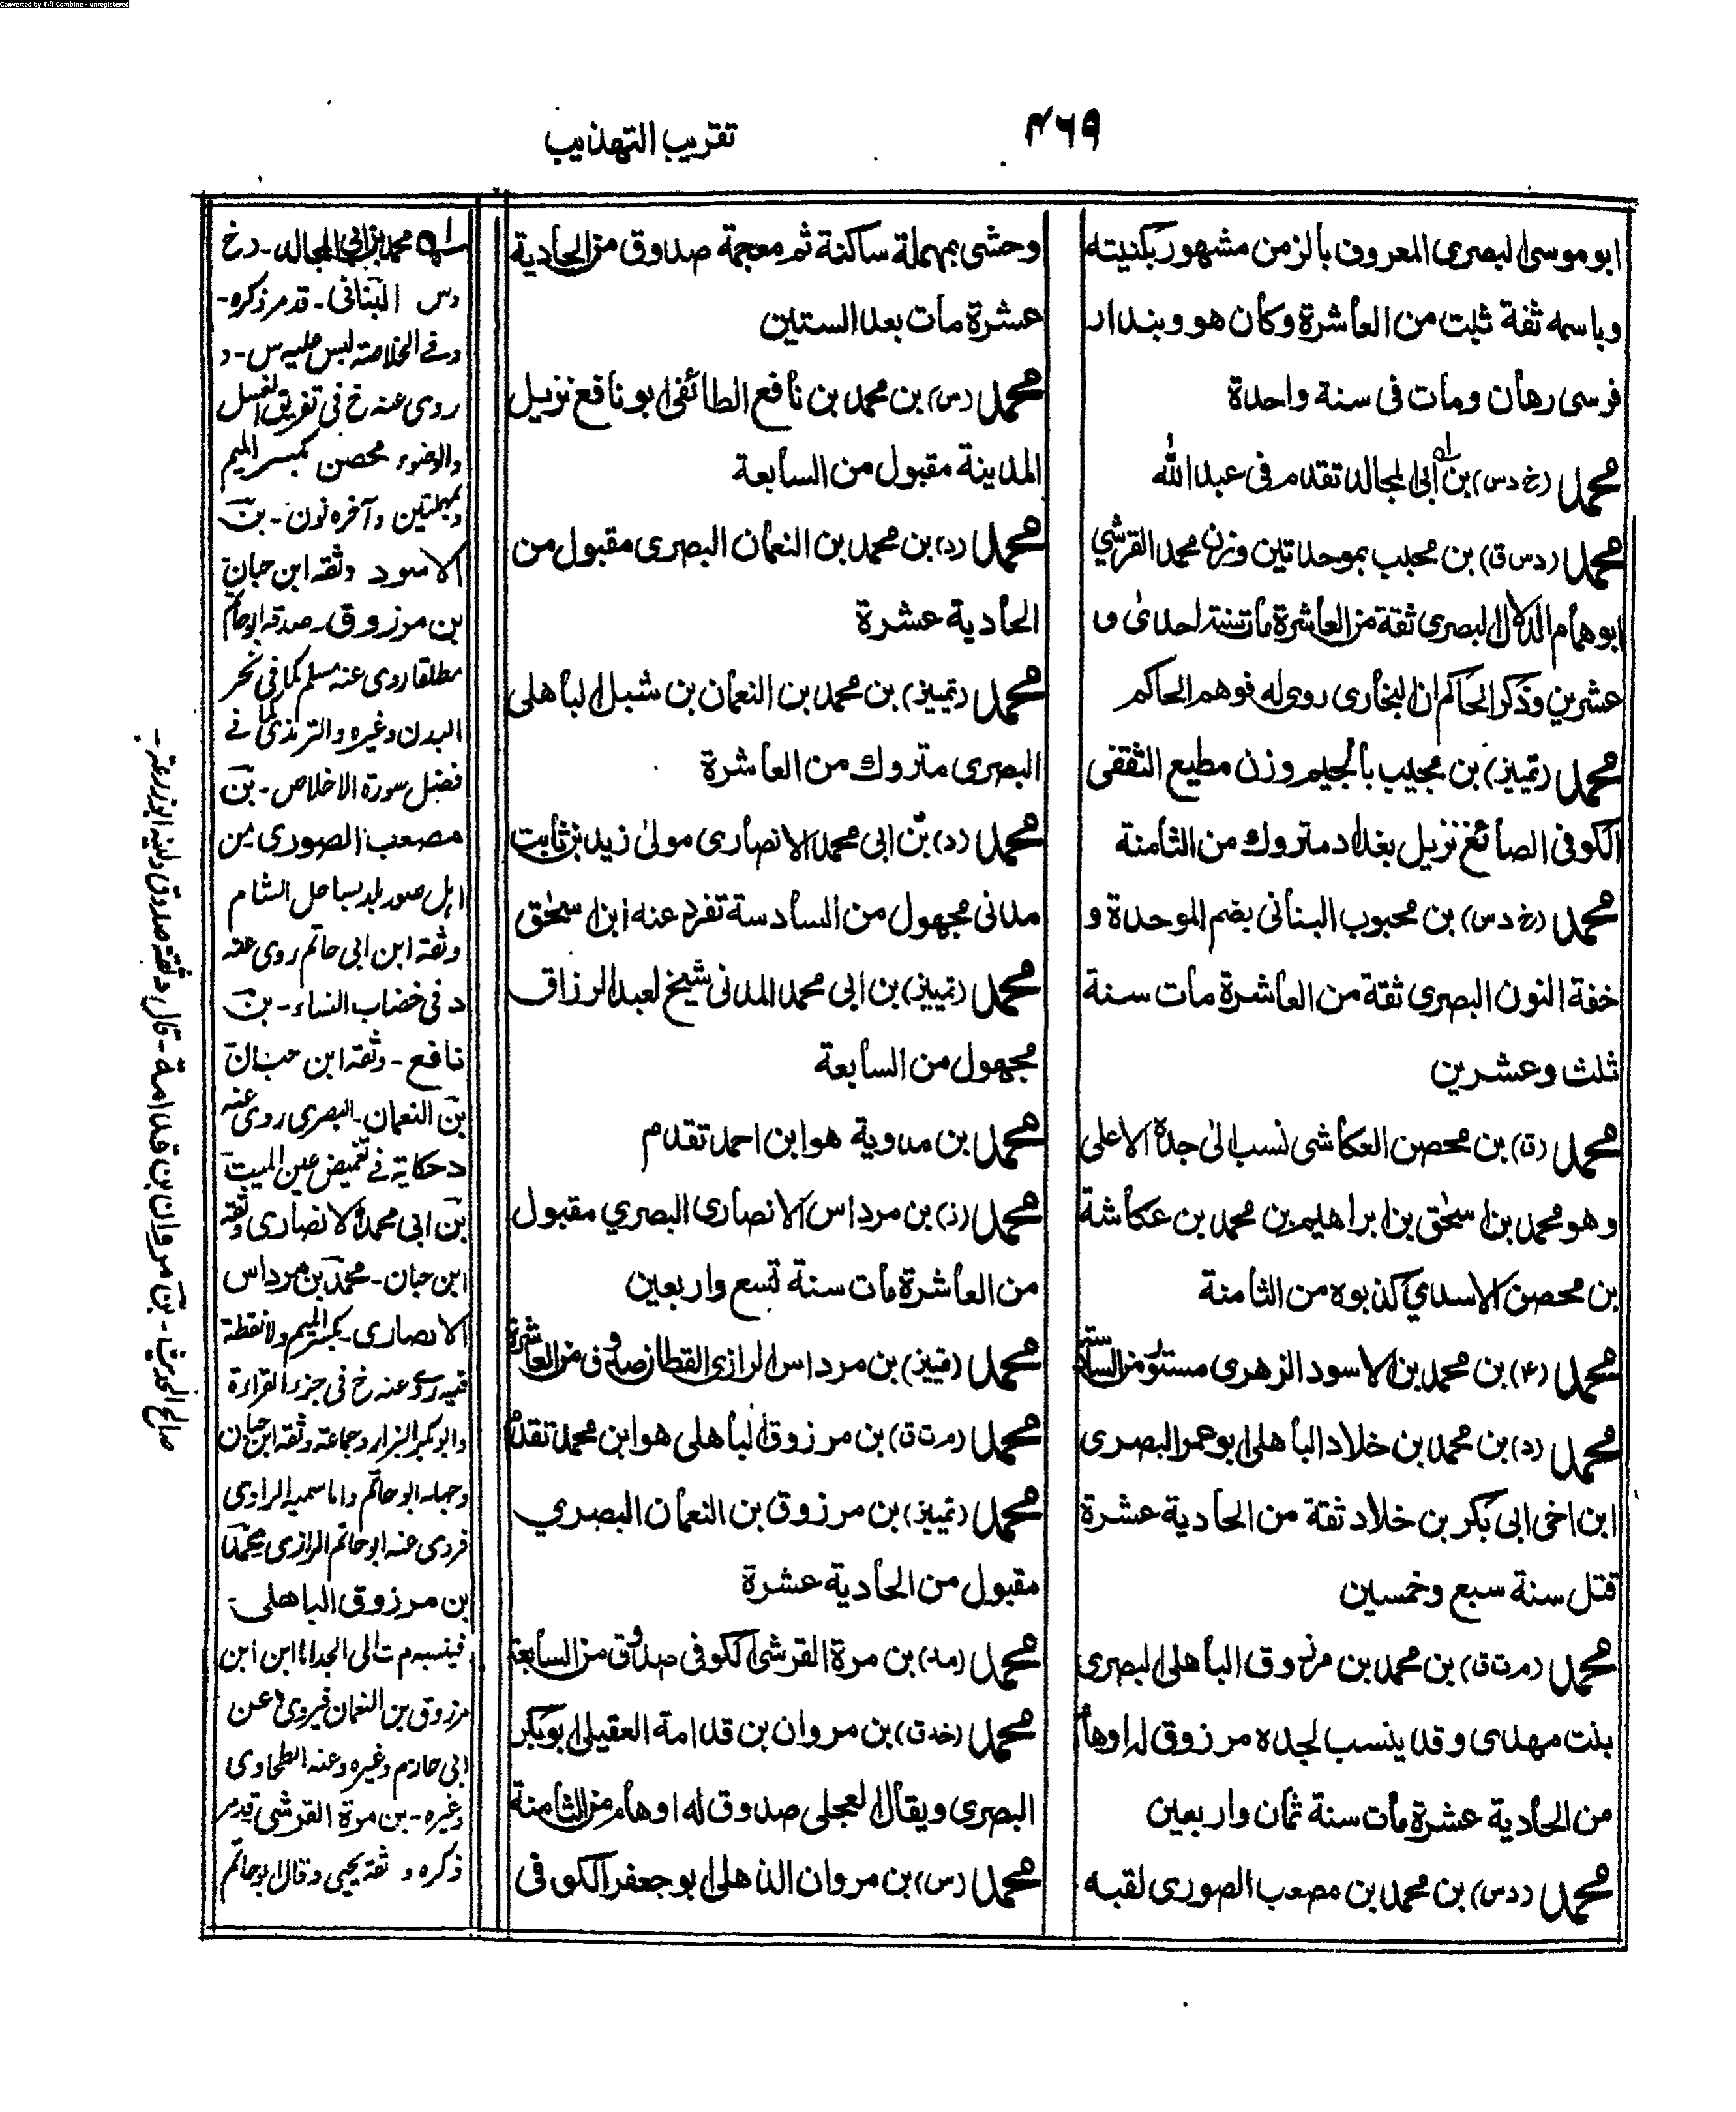 Converted by Tiff Combine - unregistered
۴۶۹
تقريب التهذيب
ابو موسى البصرى المعروف بالزمن مشهور بكنيته
وباسمه ثقة ثبت من العاشرة وكان هو وبندار
فرسى رهان ومات فى سنة واحدة
محمد (خ د س) بن ابى المجالد تقدم فى عبد الله
محمد (د س ق) بن محبب بموحدتين وزن محمد القرشي
ابو همام الدلال البصرى ثقة من العاشرة مات سنة احدى و
عشرين وذكر الحاكم ان البخارى روى له فوهم الحاكم
محمد (تمييز) بن مجيب بالجيم وزن مطيع الثقفى
الكوفى الصائغ نزيل بغداد متروك من الثامنة
محمد (خ د س) بن محبوب البنانى بضم الموحدة و
خفة النون البصرى ثقة من العاشرة مات سنة
ثلث وعشرين
محمد (ق) بن محصن العكاشى نسب الى جده الاعلى
وهو محمد بن اسحق بن ابراهيم بن محمد بن عكاشة
بن محصن الاسدي كذبوه من الثامنة
محمد (۴) بن محمد بن الاسود الزهرى مستور من السادسة
محمد (د) بن محمد بن خلاد الباهلى ابو عمر البصرى
ابن اخى ابى بكر بن خلاد ثقة من الحادية عشرة
قتل سنة سبع وخمسين
محمد (م ت ق) بن محمد بن مرزوق الباهلى البصرى
بنت مهدى وقد ينسب لجده مرزوق له اوهام
من الحادية عشرة مات سنة ثمان واربعين
محمد (د س) بن محمد بن مصعب الصورى لقبه
وحشى بمهملة ساكنة ثم معجمة صدوق من الحادية
عشرة مات بعد الستين
محمد (س) بن محمد بن نافع الطائفى ابو نافع نزيل
المدينة مقبول من السابعة
محمد (د) بن محمد بن النعمان البصرى مقبول من
الحادية عشرة
محمد (تمييز) بن محمد بن النعمان بن شبل الباهلى
البصرى متروك من العاشرة
محمد (د) بن ابى محمد الانصارى مولى زيد بن ثابت
مدنى مجهول من السادسة تفرد عنه ابن اسحق
محمد (تمييز) بن ابى محمد المدنى شيخ لعبد الرزاق
مجهول من السابعة
محمد بن مدوية هو ابن احمد تقدم
محمد (ز) بن مرداس الانصارى البصري مقبول
من العاشرة مات سنة تسع واربعين
محمد (تمييز) بن مرداس الرازى القطان صدوق من العاشرة
محمد (م ت ق) بن مرزوق الباهلى هو ابن محمد تقدم
محمد (تمييز) بن مرزوق بن النعمان البصري
مقبول من الحادية عشرة
محمد (مد) بن مرة القرشى الكوفى صدوق من السابعة
محمد (خد ق) بن مروان بن قدامة العقيلى ابو بكر
البصرى ويقال العجلى صدوق له اوهام من الثامنة
محمد (س) بن مروان الذهلى ابو جعفر الكوفى
محمد بن ابى المجالد - د خ
د س البنانى - قد مر ذكره -
وفى الخلاصة ليس عليه س - و
روى عنه خ فى تفريق الغسل
والوضوء محصن بكسر الميم
وبمهملتين وآخره نون - بن
الاسود وثقه ابن حبان
بن مرزوق - صدقه ابو حاتم
مطلقا روى عنه مسلم كما فى نحر
البدن وغيره والترمذى كما فى
فضل سورة الاخلاص - بن
مصعب الصورى من
اهل صور بلد بساحل الشام
وثقه ابن ابى حاتم روى عنه
د فى خضاب النساء - بن
نافع - وثقه ابن حبان
بن النعمان - البصرى روى عنه
د حكاية فى تغميض عين الميت
بن ابى محمد الانصارى وثقه
ابن حبان - محمد بن مرداس
الانصارى - بكسر الميم ولا نقطة
فيه روى عنه خ فى جزء القراءة
وابو بكر البزار وجماعة وثقه ابن حبان
وجهله ابو حاتم واما سميه الرازى
فروى عنه ابو حاتم الرازى محمد
بن مرزوق الباهلى -
فينسبه م ت الى الجد اما ابن
مرزوق بن النعمان فيروى عن
ابى حازم وغيره وعنه الطحاوى
وغيره - بن مرة القرشى قد مر
ذكره و ثقه يحيى وقال ابو حاتم
صالح الحديث - بن مروان بن قدامة - قال د ثقة صدوق ولينه ابو زرعة -